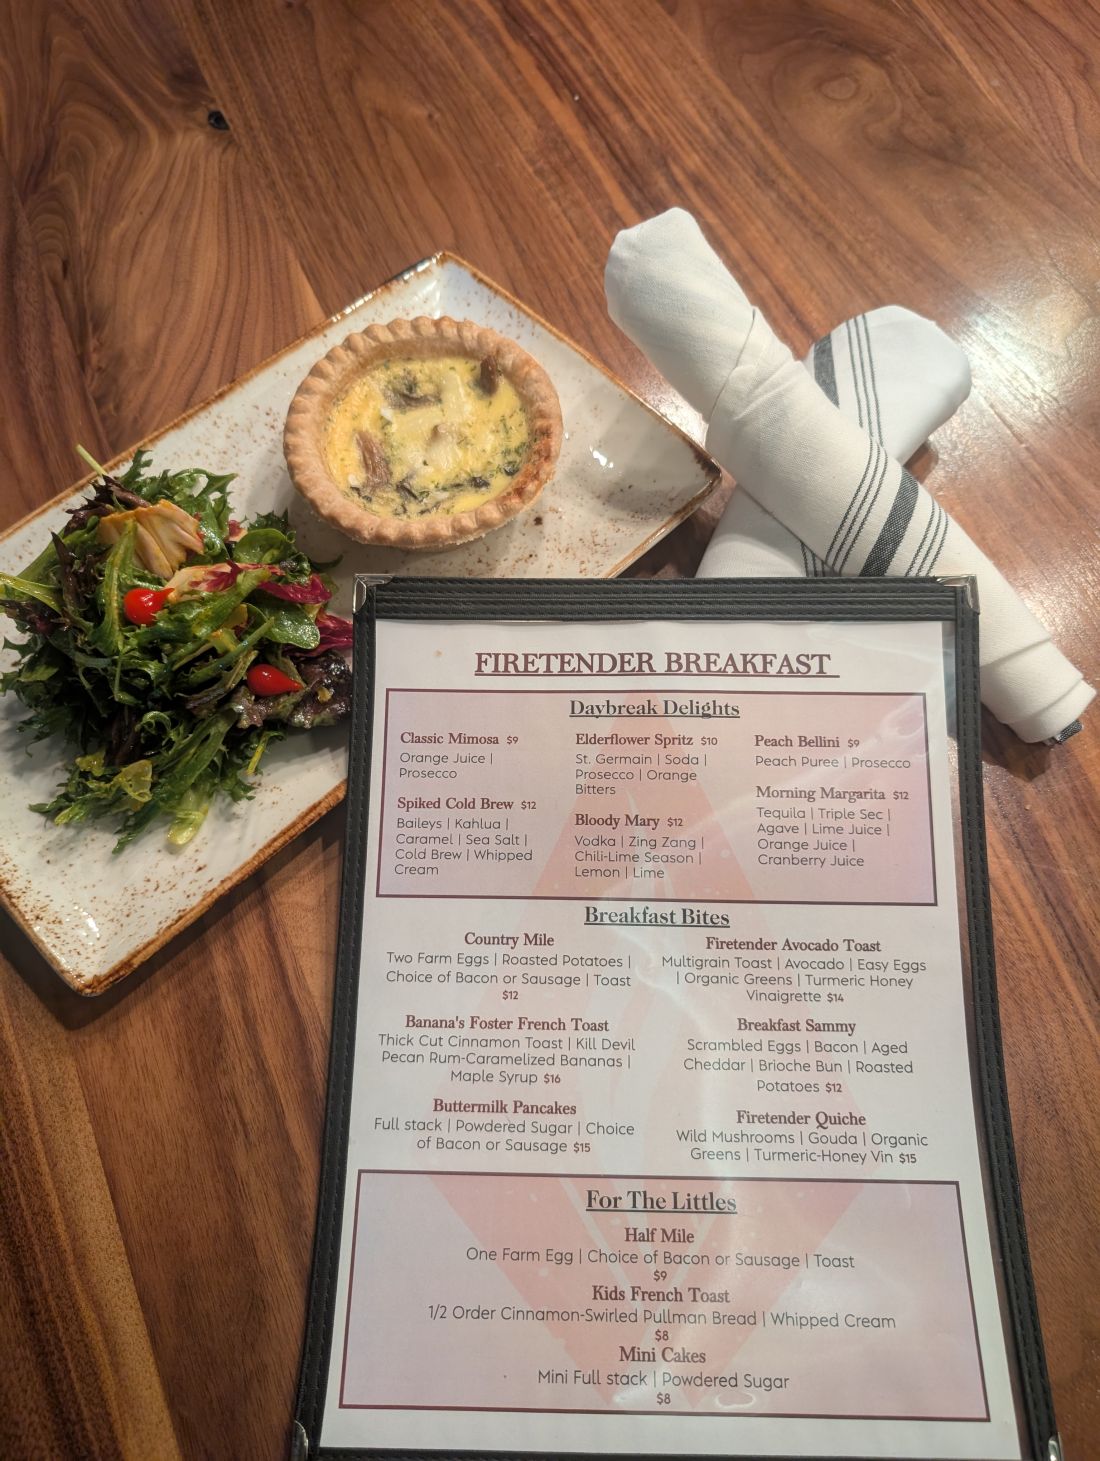 FIRETENDER BREAKFAST
Daybreak Delights
Classic Mimosa $9
Orange Juice |
Prosecco
Spiked Cold Brew $12
Baileys | Kahlua |
Caramel | Sea Salt |
Cold Brew | Whipped
Cream
Elderflower Spritz $10
St. Germain | Soda |
Prosecco | Orange
Bitters
Bloody Mary $12
Vodka | Zing Zang |
Chili-Lime Season |
Lemon | Lime
Peach Bellini $9
Peach Puree | Prosecco
Morning Margarita $12
Tequila | Triple Sec |
Agave | Lime Juice |
Orange Juice |
Cranberry Juice
Breakfast Bites
Country Mile
Two Farm Eggs | Roasted Potatoes |
Choice of Bacon or Sausage | Toast
$12
Banana's Foster French Toast
Thick Cut Cinnamon Toast | Kill Devil
Pecan Rum-Caramelized Bananas |
Maple Syrup $16
Buttermilk Pancakes
Full stack | Powdered Sugar | Choice
of Bacon or Sausage $15
Firetender Avocado Toast
Multigrain Toast | Avocado | Easy Eggs
| Organic Greens | Turmeric Honey
Vinaigrette $14
Breakfast Sammy
Scrambled Eggs | Bacon | Aged
Cheddar | Brioche Bun | Roasted
Potatoes $12
Firetender Quiche
Wild Mushrooms | Gouda | Organic
Greens | Turmeric-Honey Vin $15
For The Littles
Half Mile
One Farm Egg | Choice of Bacon or Sausage | Toast
$9
Kids French Toast
1/2 Order Cinnamon-Swirled Pullman Bread | Whipped Cream
$8
Mini Cakes
Mini Full stack | Powdered Sugar
$8